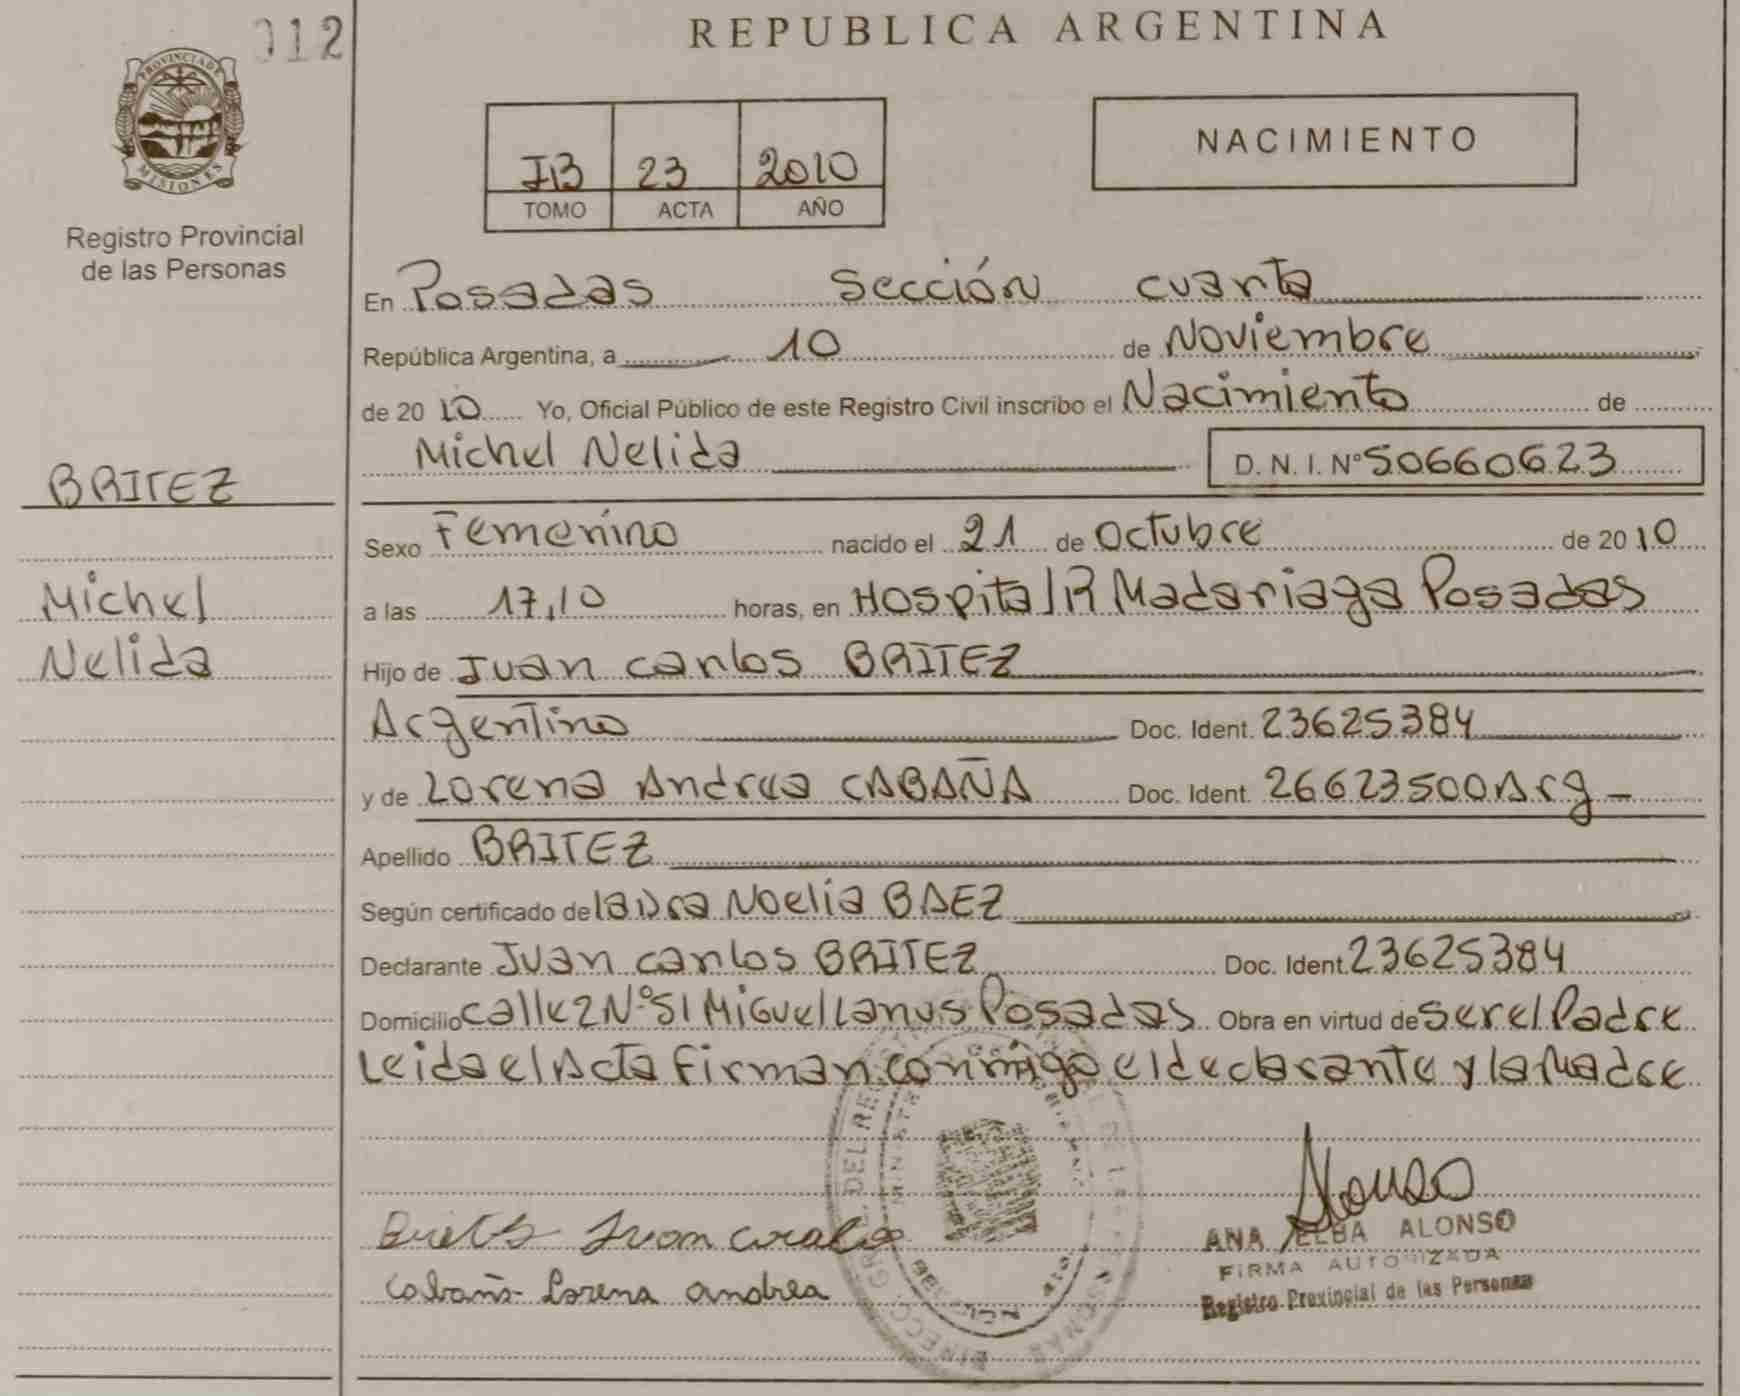 012
REPUBLICA ARGENTINA
PROVINCIA DE
MISIONES
Registro Provincial
de las Personas
IB 23 2010
TOMO ACTA AÑO
NACIMIENTO
En Posadas Sección cuarta
República Argentina, a 10 de Noviembre
de 2010 Yo, Oficial Público de este Registro Civil inscribo el Nacimiento de
Michel Nelida D. N. I. Nº 50660623
BRITEZ
Michel
Nelida
Sexo Femenino nacido el 21 de Octubre de 2010
a las 17,10 horas, en Hospital R Madariaga Posadas
Hijo de Juan carlos BRITEZ
Argentino Doc. Ident. 23625384
y de Lorena Andrea CABAÑA Doc. Ident. 26623500 Arg
Apellido BRITEZ
Según certificado de la Dra Noelia BAEZ
Declarante Juan carlos BRITEZ Doc. Ident 23625384
Domicilio calle 2 Nº 51 Miguel Lanus Posadas Obra en virtud de ser el Padre
Leida el Acta Firman conmigo el declarante y la Madre
Alonso
ANA ELBA ALONSO
FIRMA AUTORIZADA
Registro Provincial de las Personas
Juan
Cabaña Lorena andrea